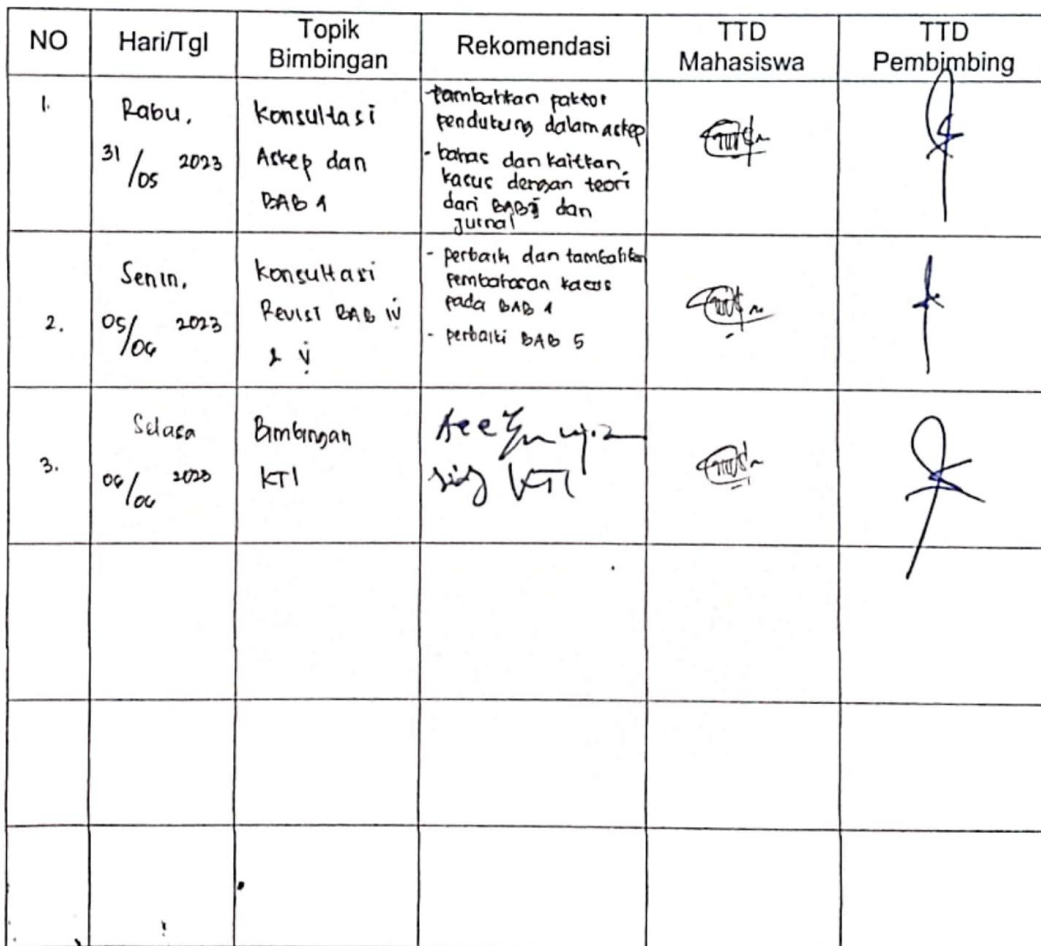 NO Hari/Tgl Topik Bimbingan Rekomendasi TTD Mahasiswa TTD Pembimbing
1.
Rabu,
31/05 2023
Konsultasi
Askep dan
BAB 4
- tambahkan faktor
pendukung dalam askep
- bahas dan kaitkan
kasus dengan teori
dari BAB dan
jurnal
2.
Senin,
05/06 2023
Konsultasi
Revisi BAB IV
& V
- perbaiki dan tambahkan
pembahasan kasus
pada BAB 4
- perbaiki BAB 5
3.
Selasa
06/06 2023
Bimbingan
KTI
Acc
KTI